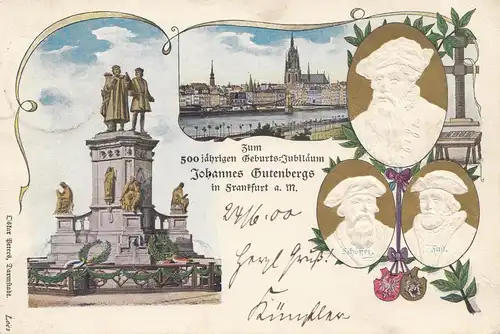 Zum
500 jährigen Geburts-Jubiläum
Johannes Gutenbergs
in Frankfurt a. M.
24/6.00
Herzl. Gruß!
Künstler
Schöffer.
Fust.
Oskar Petersen, Darmstadt.